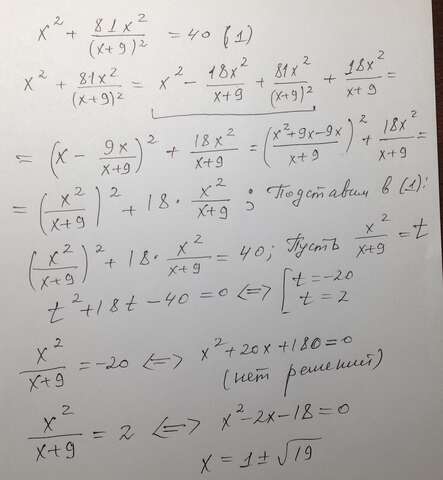 x² + 81x²/(x+9)² = 40 (1)
x² + 81x²/(x+9)² = x² - 18x²/(x+9) + 81x²/(x+9)² + 18x²/(x+9) =
= (x - 9x/(x+9))² + 18x²/(x+9) = ((x²+9x-9x)/(x+9))² + 18x²/(x+9) =
= (x²/(x+9))² + 18 · x²/(x+9) ; Подставим в (1):
(x²/(x+9))² + 18 · x²/(x+9) = 40; Пусть x²/(x+9) = t
t² + 18t - 40 = 0 <=> [ t = -20
t = 2
x²/(x+9) = -20 <=> x² + 20x + 180 = 0
(нет решений)
x²/(x+9) = 2 <=> x² - 2x - 18 = 0
x = 1 ± √19